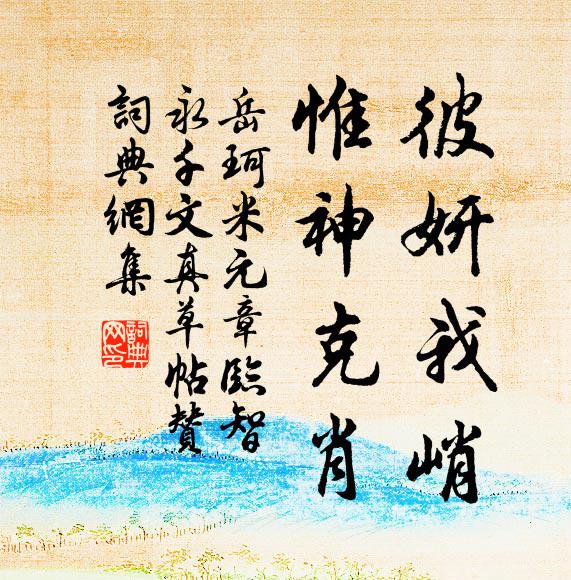 彼妍我峭
惟神克肖
岳珂米元章臨智
永千文真草帖贊
詞典網集
詞典网印